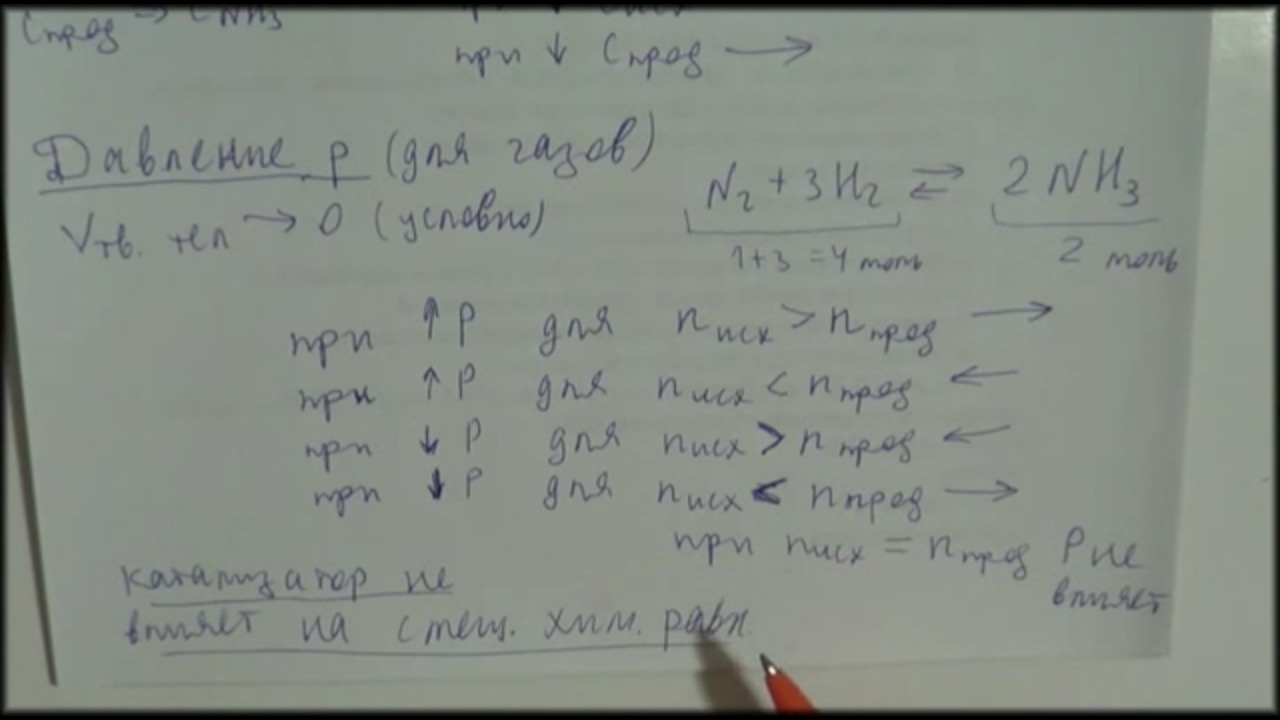 Cпрод → CNH₃
при ↓ Cпрод ⟶
Давление p (для газов)
Vтв. тел → 0 (условно)
N₂ + 3H₂ ⇄ 2NH₃
1+3 = 4 моль 2 моль
при ↑ P для nисх > nпрод ⟶
при ↑ P для nисх < nпрод ⟵
при ↓ P для nисх > nпрод ⟵
при ↓ P для nисх < nпрод ⟶
при nисх = nпрод P не
влияет
катализатор не
влияет на смещ. хим. равн